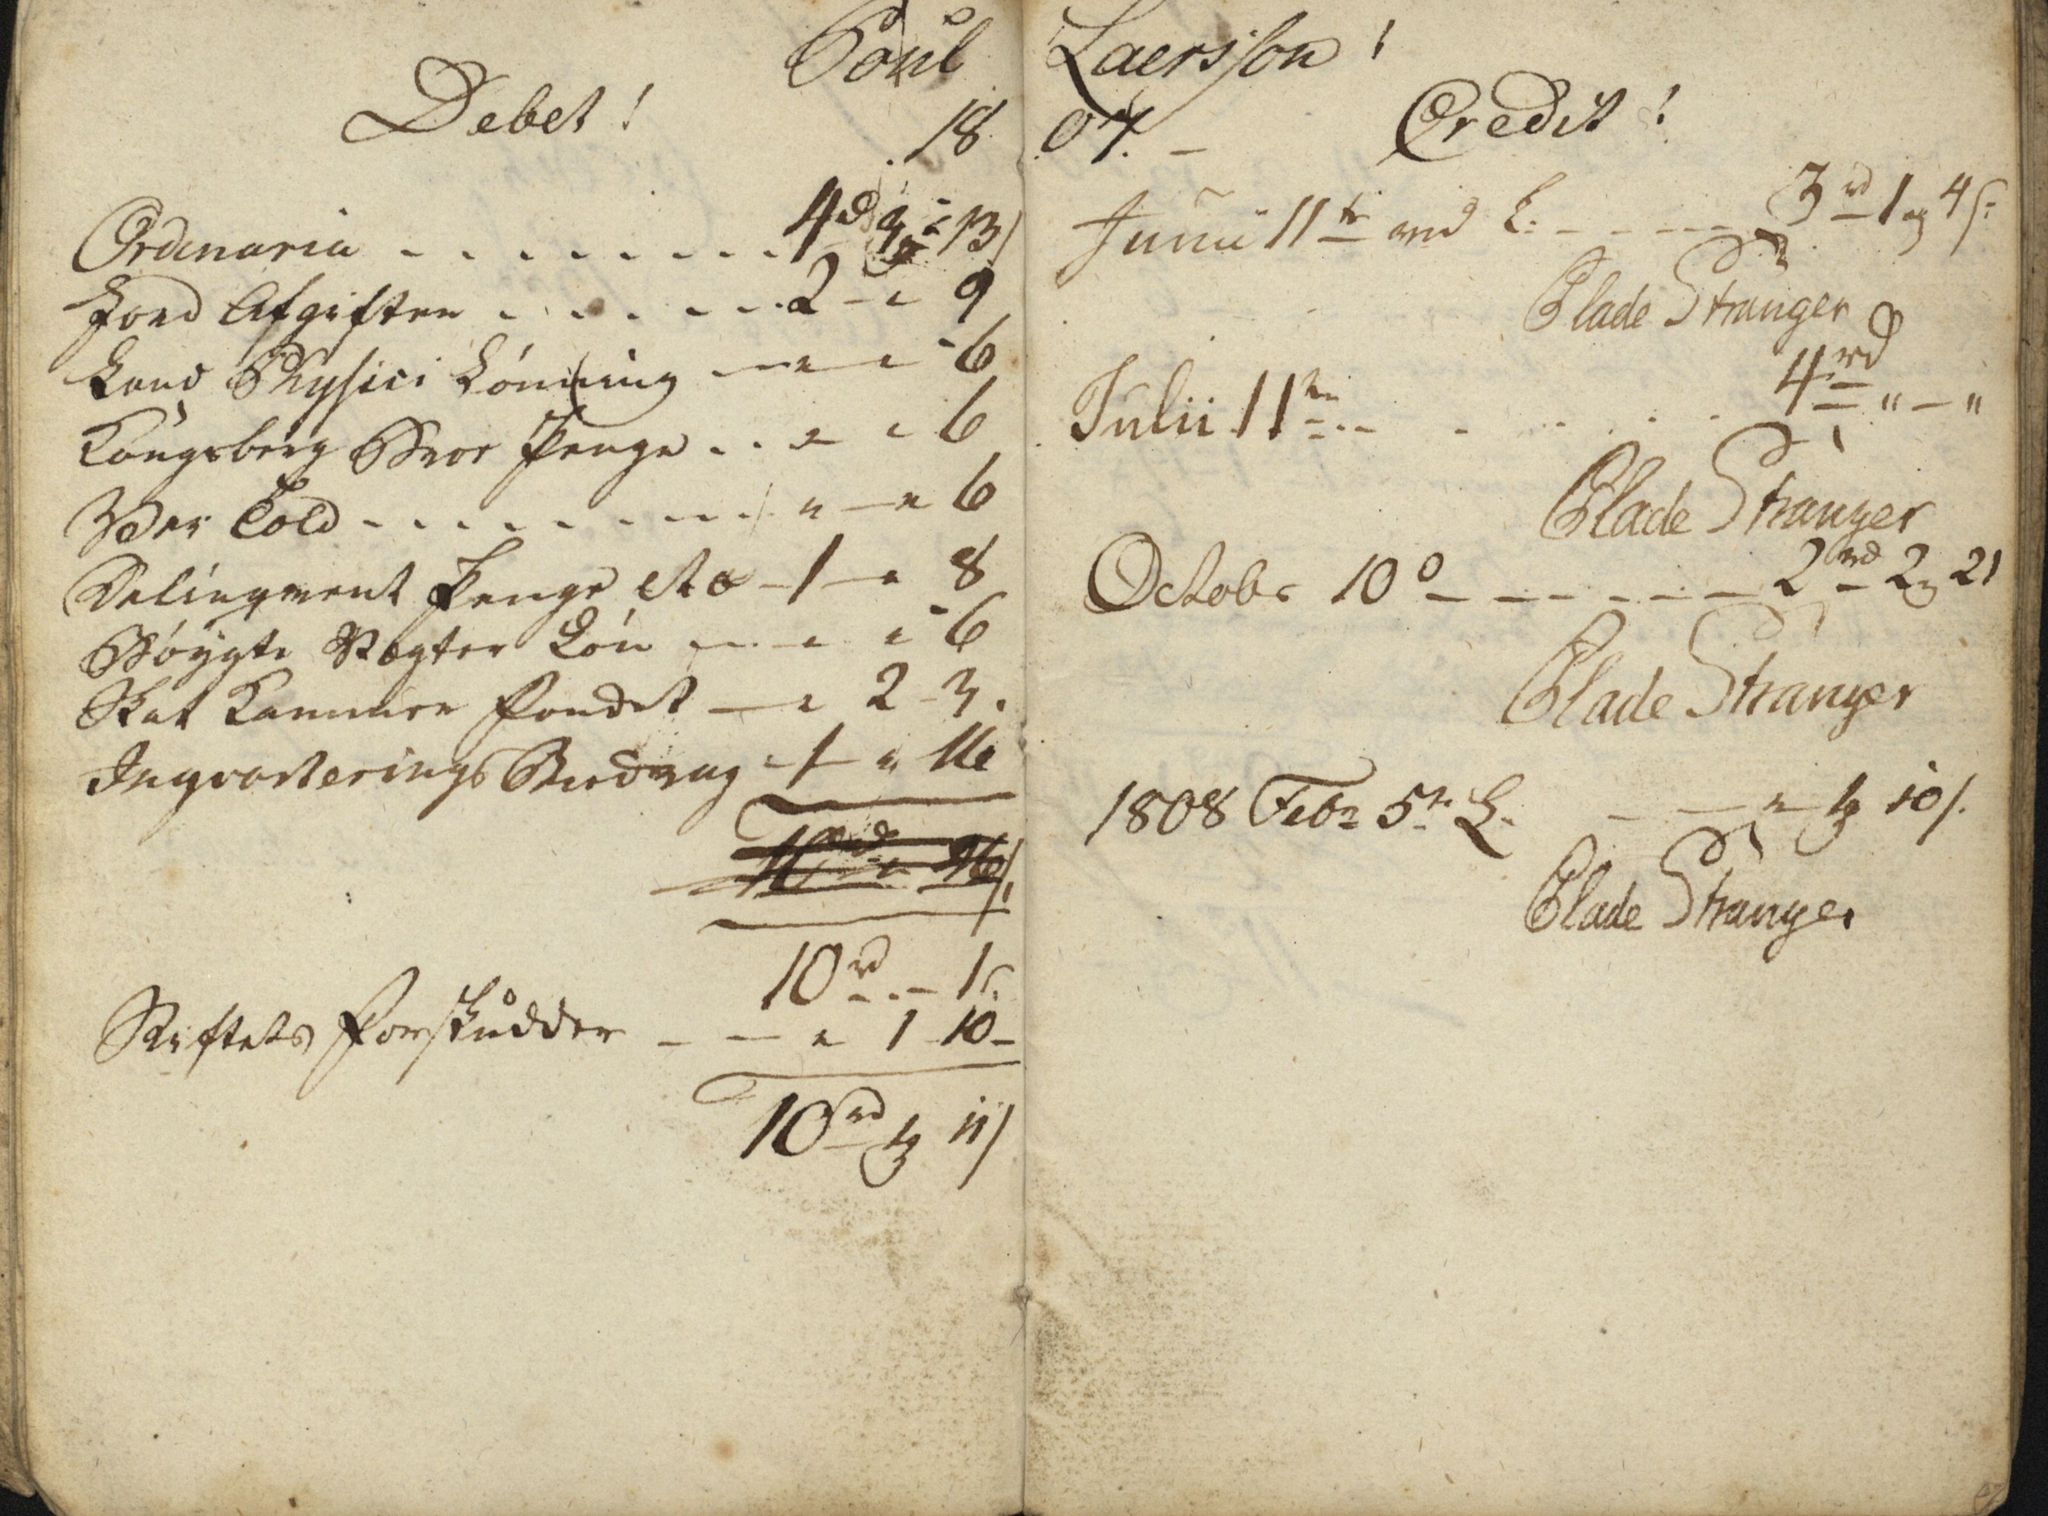 Poul Laersson!
Debet!
1807. –
Ordinaria - - - - - - - - 4 rd " 13 s
Jord Afgiften - - - - - - 2 - " 9
Land Physici Lønning - " - " - 6
Kongsberg Broe Penge - - " - " 6
Told - - - - - - - - - " - " 6
Delinqvent Penge etc - 1 - " 8
Vægter Løn - - " - " 6
Skat Kammer Fondet - " 2 - 3.
Inqvarterings Bidrag - 1 - " 16
10 rd - . - 1 s.
Stiftets Forskudder - - " 1 10 -
10 rd 1 11 s
Credit!
Junii 11te ved L: - - - - - 3 rd 1 4 s:
Elade Stranger
Julii 11te - - - - - - 4 rd " - "
Elade Stranger
Octobr 10 - - - - - - 2 rd 2 21
Elade Stranger
1808 Febr 5te L. - - " 1 10 s.
Elade Stranger